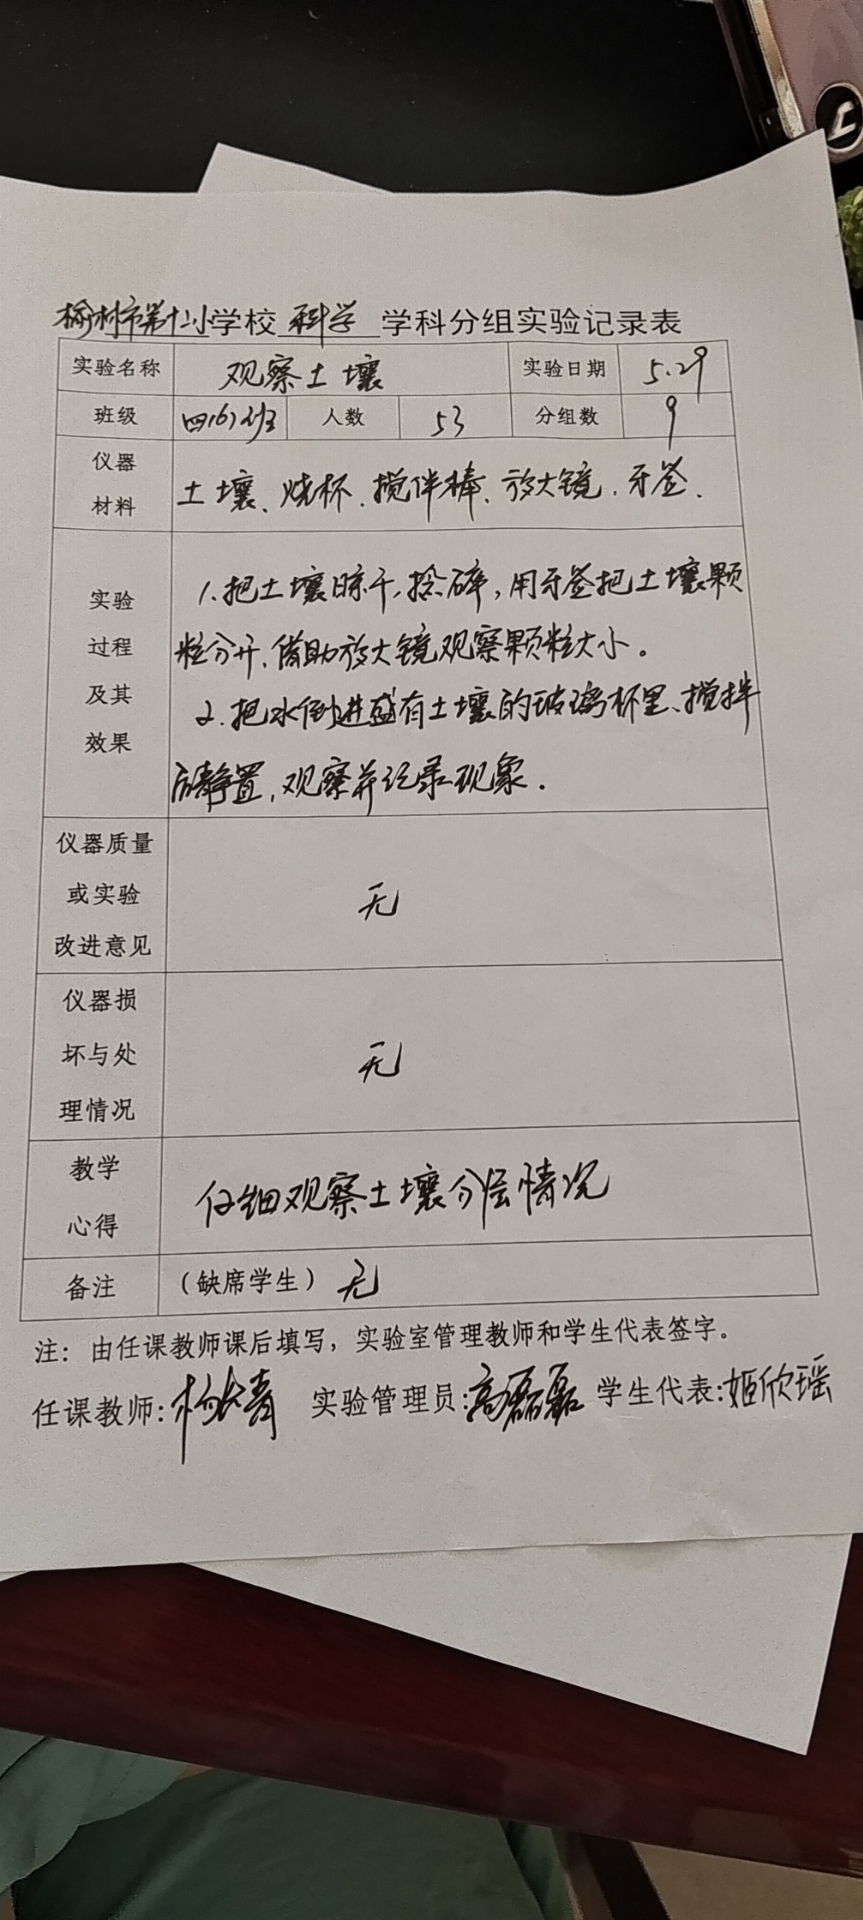 榆林市第十二小学校 科学 学科分组实验记录表
实验名称 观察土壤 实验日期 5.29
班级 四(6)班 人数 53 分组数 9
仪器
材料
土壤、烧杯、搅伴棒、放大镜、牙签、
实验
过程
及其
效果
1.把土壤晾干,捻碎,用牙签把土壤颗
粒分开,借助放大镜观察颗粒大小。
2.把水倒进盛有土壤的玻璃杯里、搅拌
后静置,观察并记录现象.
仪器质量
或实验
改进意见
无
仪器损
坏与处
理情况
无
教学
心得
仔细观察土壤分层情况
备注 (缺席学生) 无
注: 由任课教师课后填写, 实验室管理教师和学生代表签字。
任课教师:杨长青 实验管理员:高磊磊 学生代表:姬欣瑶